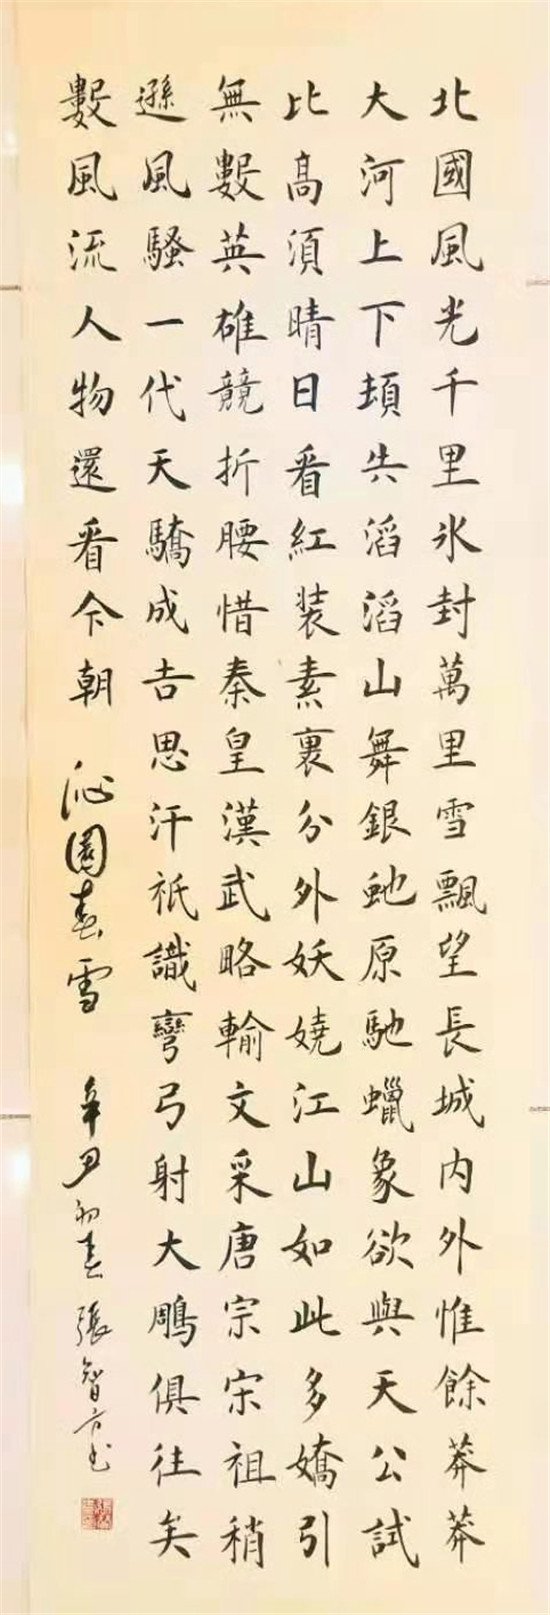 北國風光千里氷封萬里雪飄望長城内外惟餘莽莽
大河上下頓失滔滔山舞銀虵原馳蠟象欲與天公試
比高須晴日看紅装素裹分外妖嬈江山如此多嬌引
無數英雄競折腰惜秦皇漢武略輸文采唐宗宋祖稍
遜風騷一代天驕成吉思汗祇識彎弓射大鵰俱往矣
數風流人物還看今朝 沁園春雪 辛丑初春 張智方书